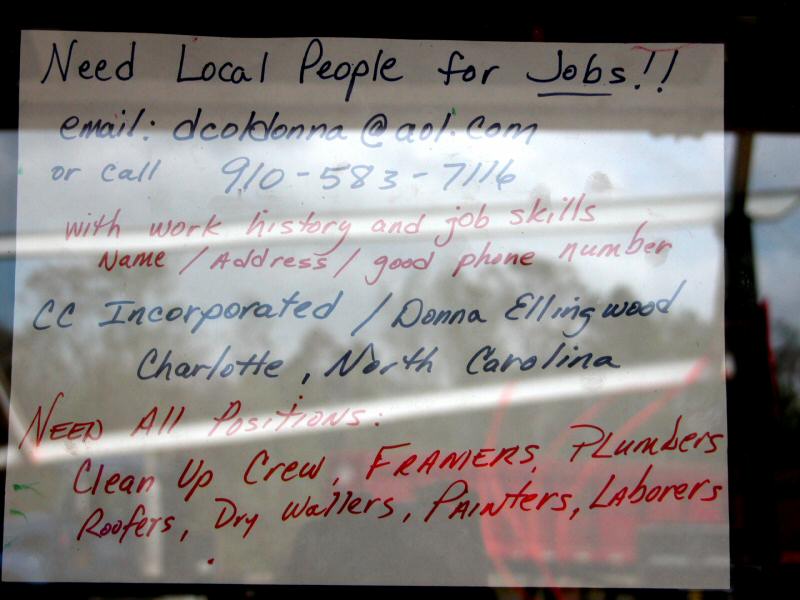 Need Local People for Jobs!!
email: dcoldonna@aol.com
or call 910-583-7116
with work history and job skills
Name / Address / good phone number
CC Incorporated / Donna Ellingwood
Charlotte, North Carolina
NEED All Positions:
Clean Up Crew, FRAMERS, Plumbers
Roofers, Dry Wallers, PAINters, LAborers